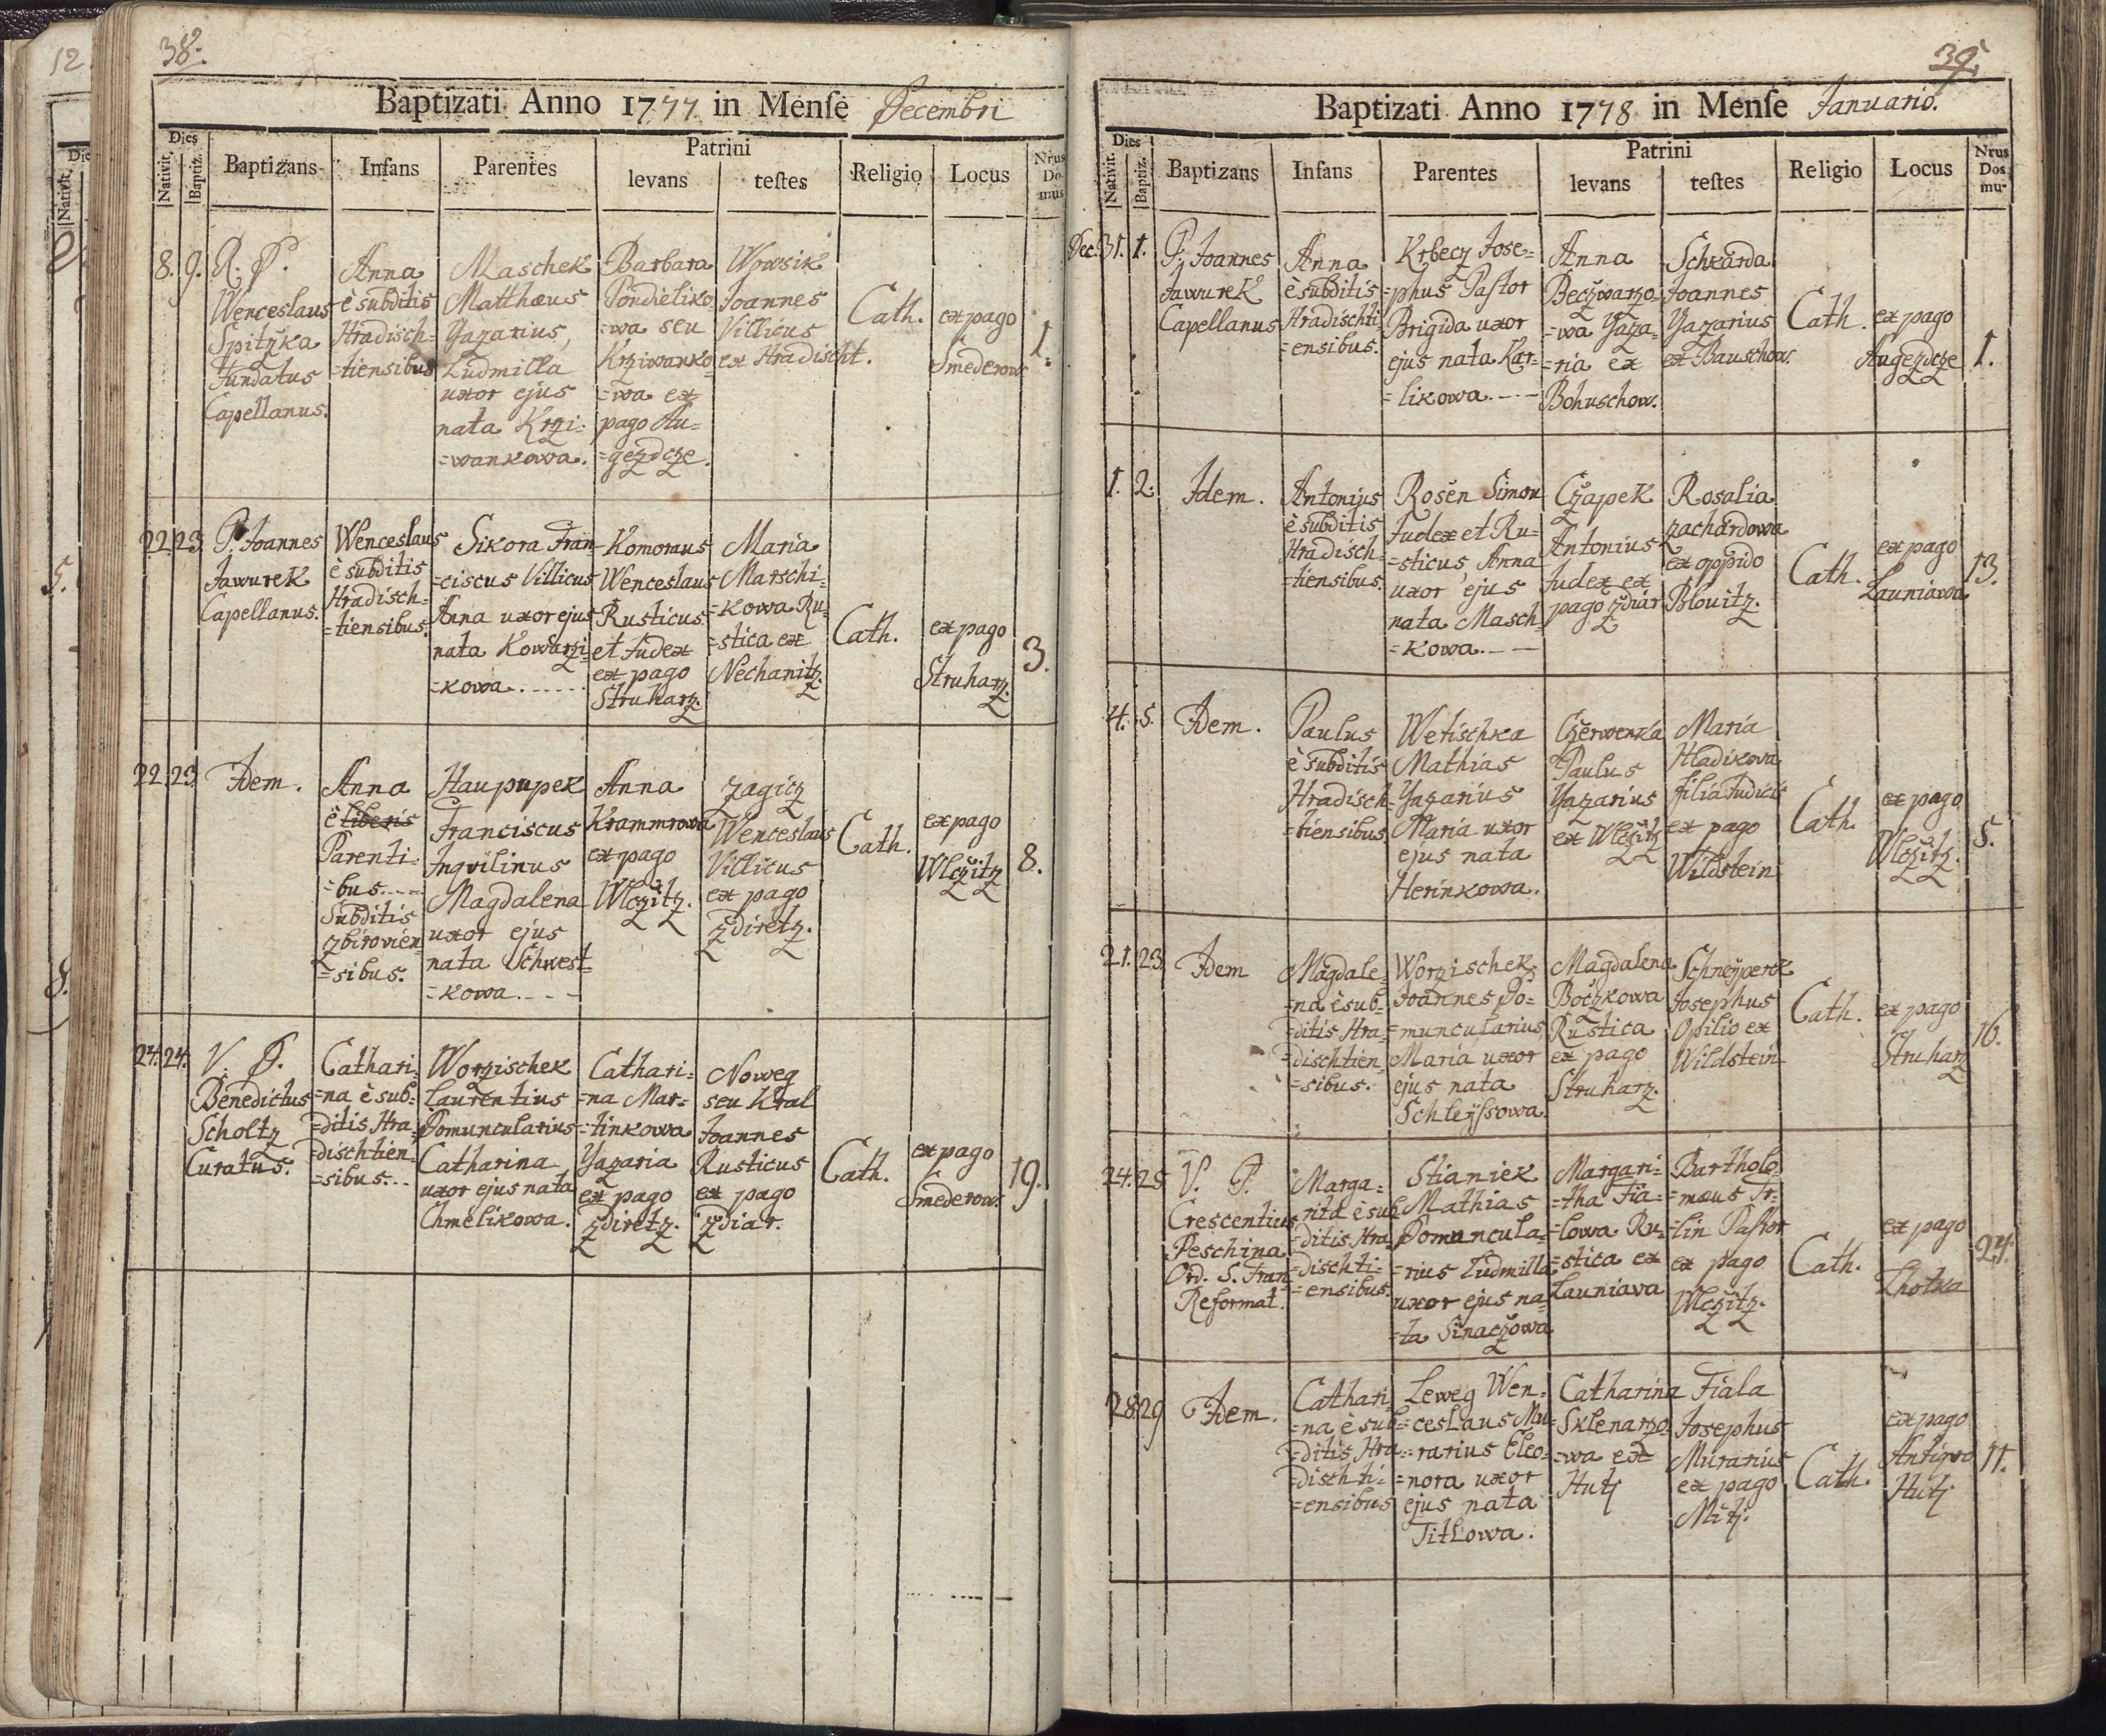 38.
Baptizati Anno 1777 in Mense Decembri
Dies
Nativit.
Baptiz.
Baptizans
Infans
Parentes
Patrini
levans
testes
Religio
Locus
Nrus Do- mus
8. 9.
R. P.
Wenceslaus
Spitzka
Fundatus
Capellanus.
Anna
è subditis
Hradisch=
=tiensibus
Maschek
Matthæus
Yazarius,
Ludmilla
uxor ejus
nata Krzi=
=wankowa.
Barbara
Pondieliko
=wa seu
Krziwanko=
=wa ex
pago Au=
=gezdcze.
Wowsik
Joannes
Villicus
ex Hradischt.
Cath.
ex pago
Smederow
1.
22. 23.
P. Joannes
Jawurek
Capellanus.
Wenceslaus
è subditis
Hradisch=
=tiensibus.
Sikora Fran
=ciscus Villicus
Anna uxor ejus
nata Kowarzi=
=kowa.
Komoraus
Wenceslaus
Rusticus
et Judex
ex pago
Struharz.
Maria
Marschi=
=kowa Ru=
=stica ex
Nechanitz.
Cath.
ex pago
Struharz.
3.
22. 23.
Idem.
Anna
è liberis
Parenti=
=bus.
Subditis
Zbirovien
=sibus.
Haupupek
Franciscus
Inqvilinus
Magdalena
uxor ejus
nata Schwest=
=kowa.
Anna
Krammrowa
ex pago
Wlczitz.
Zagicz
Wenceslaus
Villicus
ex pago
Zdiretz.
Cath.
ex pago
Wlczitz
8.
24. 24.
V. P.
Benedictus
Scholtz
Curatus.
Cathari=
=na è sub=
=ditis Hra
=dischtien
=sibus.
Worzischek
Laurentius
Domuncularius
Catharina
uxor ejus nata
Chmelikowa.
Cathari=
=na Mar=
=tinkowa
Yazaria
ex pago
Zdiretz.
Noweg
seu Kral
Joannes
Rusticus
ex pago
Zdiar.
Cath.
ex pago
Smederow.
19.
39.
Baptizati Anno 1778 in Mense Januario.
Dies
Nativit.
Baptiz.
Baptizans
Infans
Parentes
Patrini
levans
testes
Religio
Locus
Nrus Do mu-
Dec. 31. 1.
P. Joannes
Jawurek
Capellanus
Anna
è subditis
Hradischti
=ensibus.
Krbecz Jose=
=phus Pastor
Brigida uxor
ejus nata Kar=
=likowa.
Anna
Beczwarzo=
=wa Yaza=
=ria ex
Bohuschow.
Schkarda
Joannes
Yazarius
ex Bauschow.
Cath.
ex pago
Augezdcze
1.
1. 2.
Idem.
Antonius
è subditis
Hradisch=
=tiensibus.
Rosen Simon
Judex et Ru=
=sticus, Anna
uxor ejus
nata Masch=
=kowa.
Czapek
Antonius
Judex ex
pago Zdiar
Rosalia
Zachardowa
ex oppido
Blouitz.
Cath.
ex pago
Launiawa
13.
4. 5.
Idem.
Paulus
è subditis
Hradisch=
=tiensibus
Wetischka
Mathias
Yazarius
Maria uxor
ejus nata
Herinkowa.
Czerwenka
Paulus
Yazarius
ex Wlczitz
Maria
Hladikowa
filia Judicis
ex pago
Wildstein
Cath.
ex pago
Wlczitz.
5.
21. 23.
Idem
Magdale=
=na è sub=
=ditis Hra=
=dischtien
=sibus.
Worzischek
Joannes Do=
=muncularius,
Maria uxor
ejus nata
Schleÿssowa.
Magdalena
Boczkowa
Rustica
ex pago
Struharz.
Schneÿperek
Josephus
Opilio ex
Wildstein
Cath.
ex pago
Struharz
16.
24. 25.
V. P.
Crescentius
Peschina
Ord. S. Fran
Reformat.
Marga=
=rita è sub
=ditis Hra
=dischti=
=ensibus.
Stianiek
Mathias
Domuncula=
=rius Ludmilla
uxor ejus na=
=ta Sinaczowa
Margari=
=tha Fia=
=lowa Ru=
=stica ex
Launiava
Bartholo
=mæus Tr=
=lin Pastor
ex pago
Wlczitz.
Cath.
ex pago
Lhotka
24.
28. 29
Idem.
Cathari=
=na è sub=
=ditis Hra
=dischti=
=ensibus
Leweg Wen=
=ceslaus Mu=
=rarius Eleo=
=nora uxor
ejus nata
Titlowa.
Catharina
Sklenarzo=
=wa ex
Hutj
Fiala
Josephus
Murarius
ex pago
Mitj.
Cath.
ex pago
Antiqvo
Hutj
11.